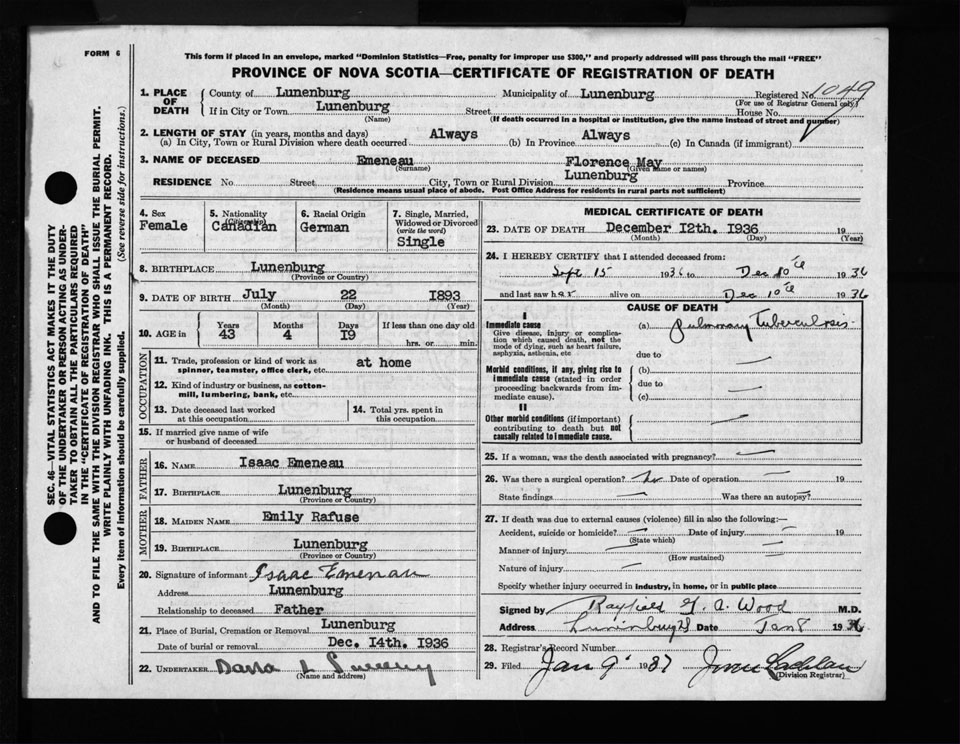 FORM 6
This form if placed in an envelope, marked "Dominion Statistics—Free, penalty for improper use $300," and properly addressed will pass through the mail "FREE"
PROVINCE OF NOVA SCOTIA—CERTIFICATE OF REGISTRATION OF DEATH
SEC. 46—VITAL STATISTICS ACT MAKES IT THE DUTY
OF THE UNDERTAKER OR PERSON ACTING AS UNDER-
TAKER TO OBTAIN ALL THE PARTICULARS REQUIRED
IN THE "CERTIFICATE OF REGISTRATION OF DEATH"
AND TO FILE THE SAME WITH THE DIVISION REGISTRAR WHO SHALL ISSUE THE BURIAL PERMIT.
WRITE PLAINLY WITH UNFADING INK. THIS IS A PERMANENT RECORD.
Every item of information should be carefully supplied. (See reverse side for instructions.)
1. PLACE OF DEATH
County of Lunenburg Municipality of Lunenburg Registered No. 1049
(For use of Registrar General only)
If in City or Town Lunenburg Street House No.
(Name) (If death occurred in a hospital or institution, give the name instead of street and number)
2. LENGTH OF STAY (in years, months and days)
(a) In City, Town or Rural Division where death occurred Always (b) In Province Always (c) In Canada (if immigrant)
3. NAME OF DECEASED Emeneau Florence May
(Surname) (Given name or names)
RESIDENCE No. Street City, Town or Rural Division Lunenburg Province
(Residence means usual place of abode. Post Office Address for residents in rural parts not sufficient)
4. Sex Female
5. Nationality (Citizenship) Canadian
6. Racial Origin German
7. Single, Married, Widowed or Divorced (write the word) Single
8. BIRTHPLACE Lunenburg
(Province or Country)
9. DATE OF BIRTH July 22 1893
(Month) (Day) (Year)
10. AGE in Years 43 Months 4 Days 19 If less than one day old hrs. or min.
OCCUPATION
11. Trade, profession or kind of work as spinner, teamster, office clerk, etc. at home
12. Kind of industry or business, as cotton-mill, lumbering, bank, etc.
13. Date deceased last worked at this occupation
14. Total yrs. spent in this occupation
15. If married give name of wife or husband of deceased
FATHER
16. NAME Isaac Emeneau
17. BIRTHPLACE Lunenburg
(Province or Country)
MOTHER
18. MAIDEN NAME Emily Rafuse
19. BIRTHPLACE Lunenburg
(Province or Country)
20. Signature of informant Isaac Emeneau
Address Lunenburg
Relationship to deceased Father
21. Place of Burial, Cremation or Removal Lunenburg
Date of burial or removal Dec. 14th. 1936
22. UNDERTAKER
(Name and address)
MEDICAL CERTIFICATE OF DEATH
23. DATE OF DEATH December 12th. 1936 19
(Month) (Day) (Year)
24. I HEREBY CERTIFY that I attended deceased from:
Sept 15 1936 to Dec 10th 1936
and last saw her alive on Dec 10th 1936
CAUSE OF DEATH
I
Immediate cause
Give disease, injury or complication which caused death, not the mode of dying, such as heart failure, asphyxia, asthenia, etc
(a) Pulmonary Tuberculosis
due to
Morbid conditions, if any, giving rise to immediate cause (stated in order proceeding backwards from immediate cause).
(b)
due to
(c)
II
Other morbid conditions (if important) contributing to death but not causally related to immediate cause.
25. If a woman, was the death associated with pregnancy?
26. Was there a surgical operation? No Date of operation 19
State findings Was there an autopsy?
27. If death was due to external causes (violence) fill in also the following:—
Accident, suicide or homicide? Date of injury 19
(State which)
Manner of injury
(How sustained)
Nature of injury
Specify whether injury occurred in industry, in home, or in public place
Signed by Rayfield G. A. Wood M.D.
Address Lunenburg NS Date Jan 8 19
28. Registrar's Record Number
29. Filed Jan 9 1937
(Division Registrar)